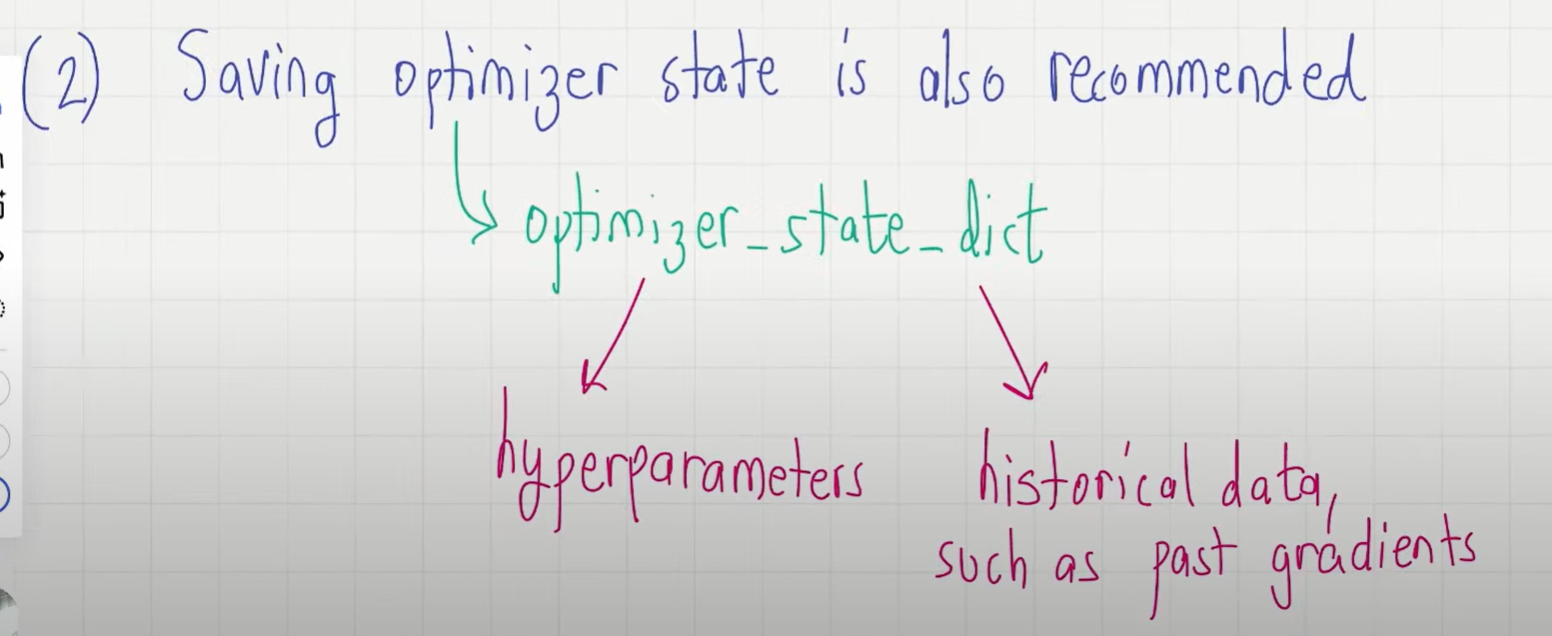 (2) Saving optimizer state is also recommended
optimizer_state_dict
hyperparameters
historical data,
such as past gradients